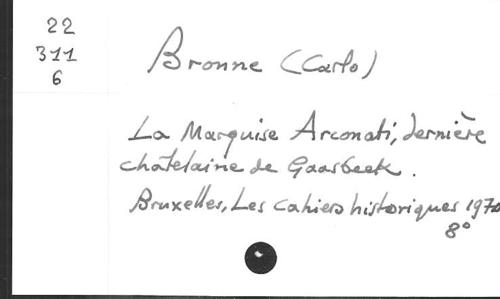 22
311
6
Bronne (Carlo)
La Marquise Arconati, dernière
chatelaine de Gaasbeek.
Bruxelles, Les Cahiers historiques 1970
8°